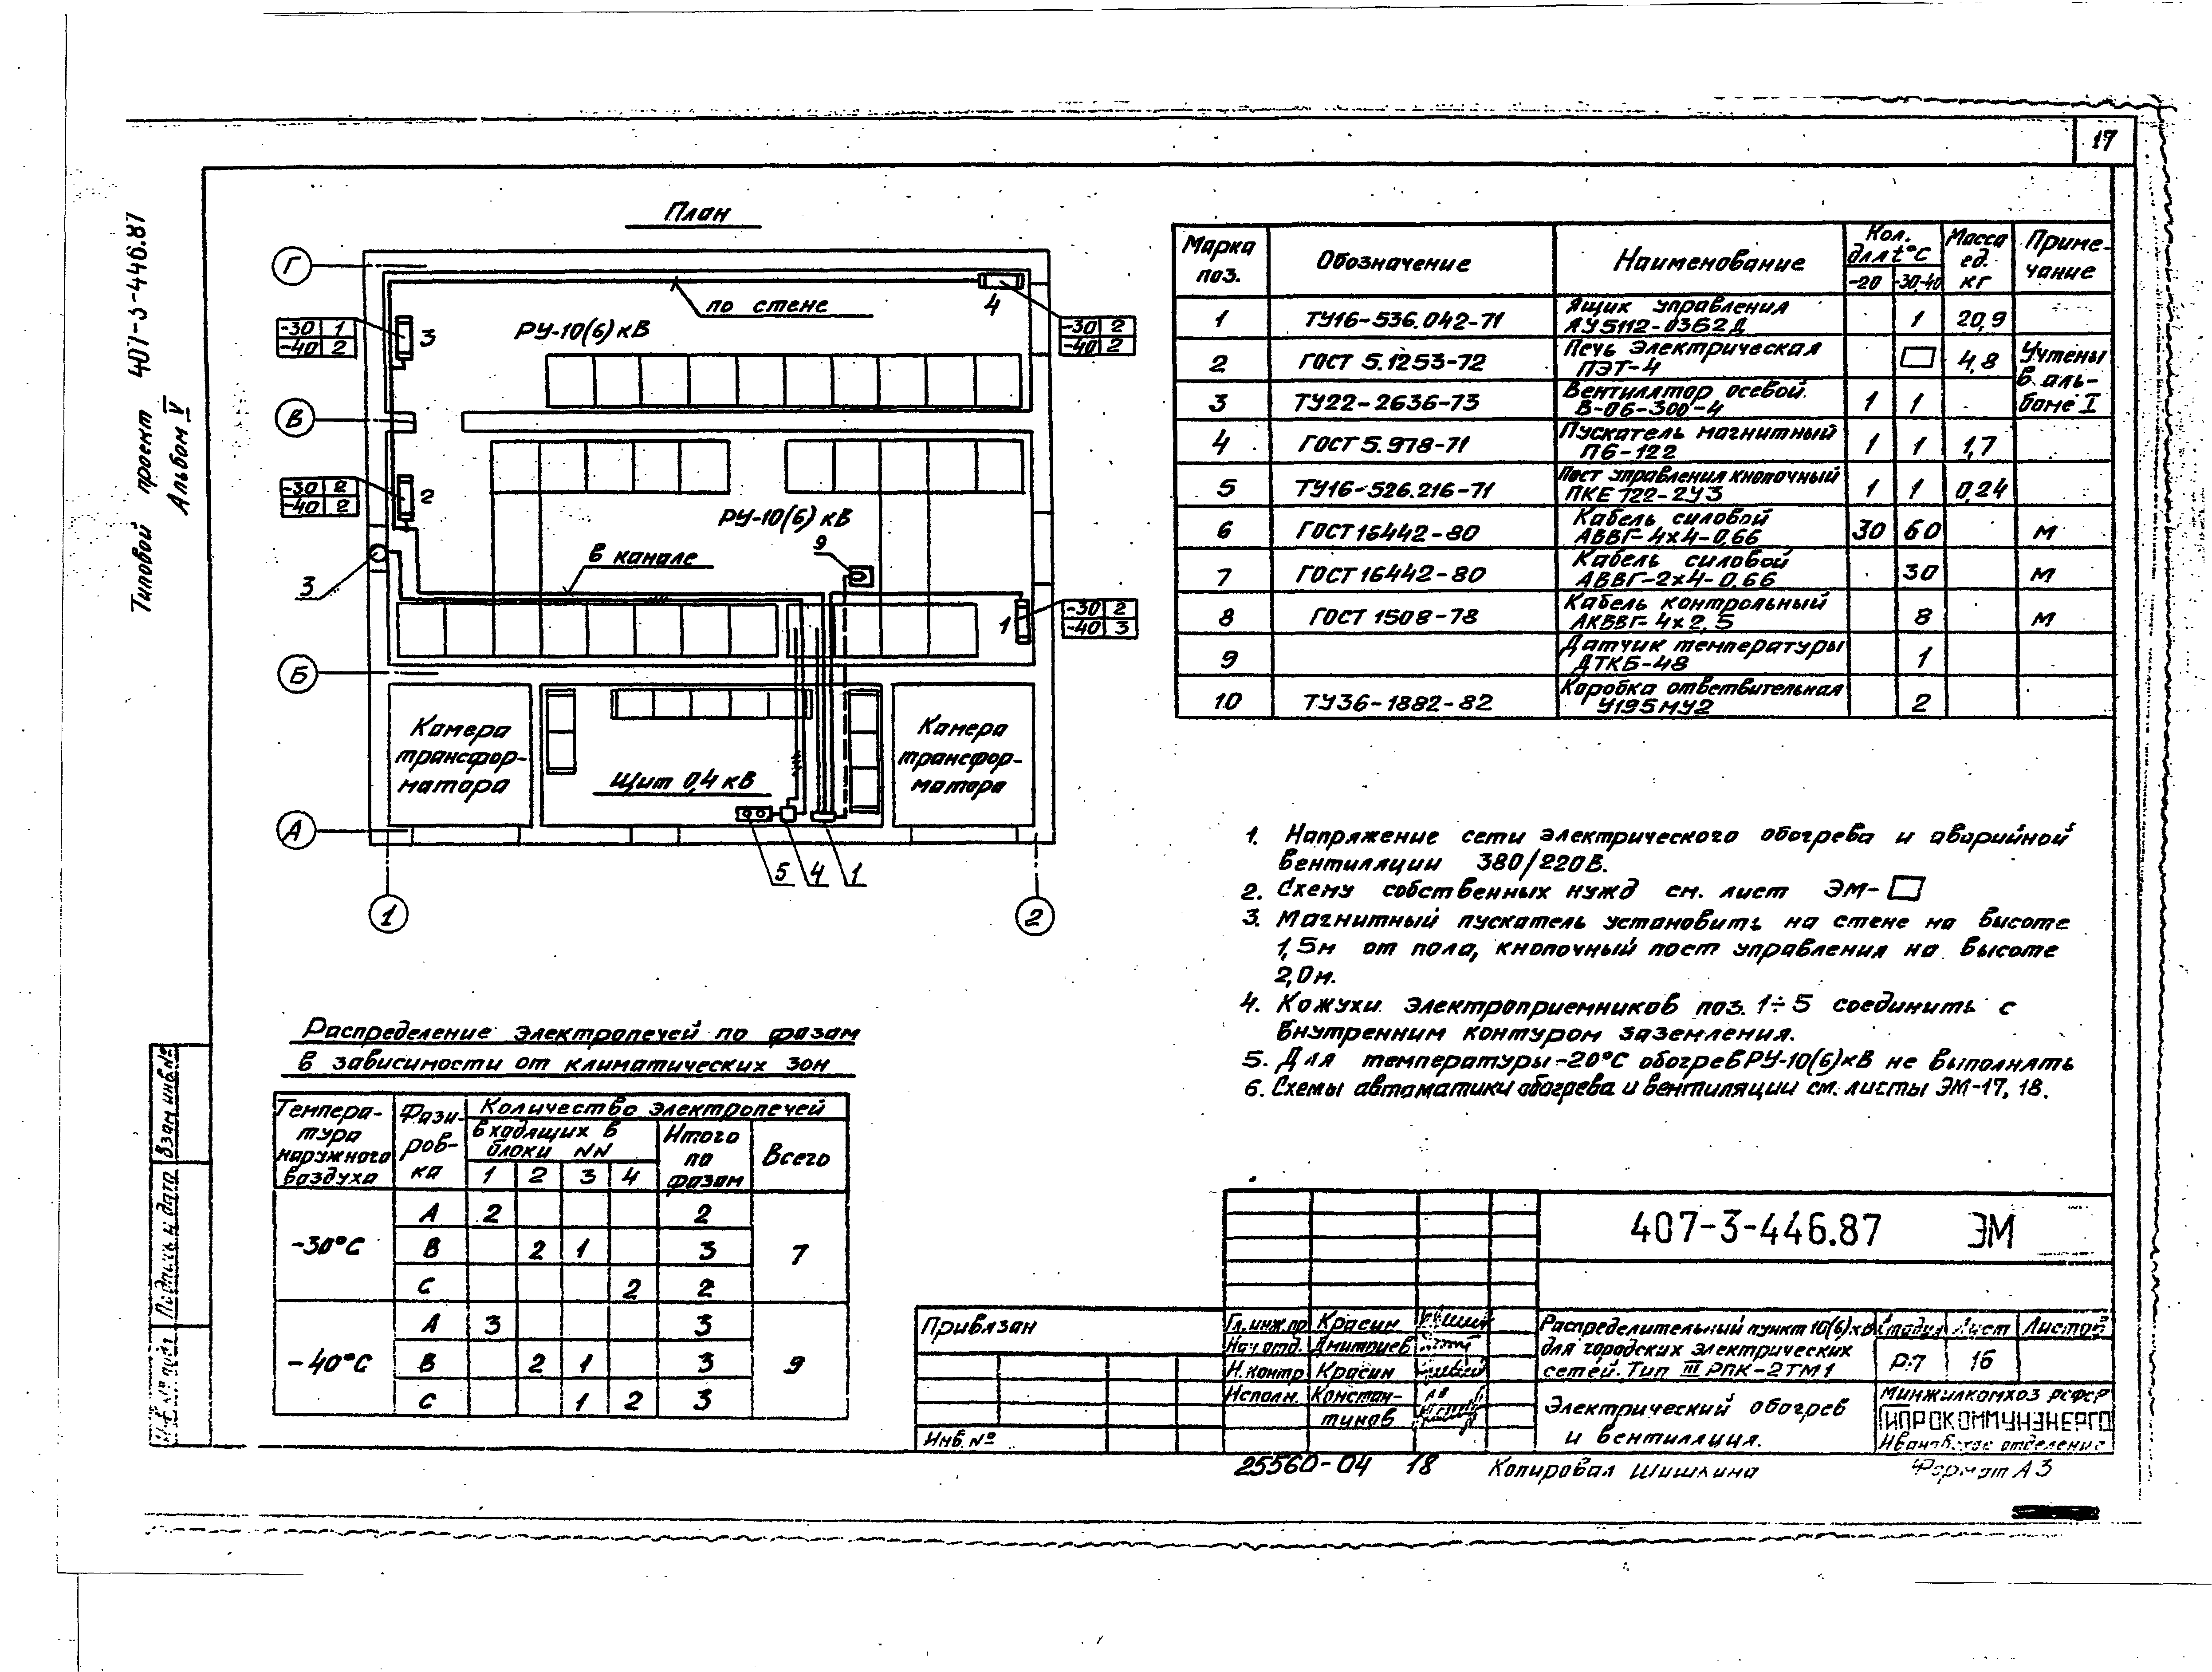 17
Типовой проект 407-3-446.87
Альбом V
План
Г
В
Б
А
1
2
по стене
РУ-10(6) кВ
4
-30 2
-40 2
-30 1
-40 2
3
-30 2
-40 2
2
РУ-10(6) кВ
9
в канале
3
1
-30 2
-40 3
Камера трансфор-матора
Щит 0,4 кВ
Камера трансфор-матора
5 4 1
Марка поз. Обозначение Наименование Кол. для t°C Масса ед. кг Приме-чание
-20 -30,-40
1 ТУ16-536.042-71 Ящик управления ЯУ5112-03Б2Д 1 20,9
2 ГОСТ 5.1253-72 Печь электрическая ПЭТ-4 4,8 Учтены в аль-боме I
3 ТУ22-2636-73 Вентилятор осевой В-06-300-4 1 1
4 ГОСТ 5.978-71 Пускатель магнитный П6-122 1 1 1,7
5 ТУ16-526.216-71 Пост управления кнопочный ПКЕ 722-2У3 1 1 0,24
6 ГОСТ 16442-80 Кабель силовой АВВГ-4х4-0,66 30 60 м
7 ГОСТ 16442-80 Кабель силовой АВВГ-2х4-0,66 30 м
8 ГОСТ 1508-78 Кабель контрольный АКВВГ-4х2,5 8 м
9 Датчик температуры ДТКБ-48 1
10 ТУ36-1882-82 Коробка ответвительная У195МУ2 2
1. Напряжение сети электрического обогрева и аварийной
вентиляции 380/220В.
2. Схему собственных нужд см. лист ЭМ-
3. Магнитный пускатель установить на стене на высоте
1,5м от пола, кнопочный пост управления на высоте
2,0м.
4. Кожухи электроприемников поз. 1÷5 соединить с
внутренним контуром заземления.
5. Для температуры -20°С обогрев РУ-10(6)кВ не выполнять
6. Схемы автоматики обогрева и вентиляции см. листы ЭМ-17, 18.
Распределение электропечей по фазам
в зависимости от климатических зон
Темпера-тура наружного воздуха Фази-ров-ка Количество электропечей
входящих в блоки NN Итого по фазам Всего
1 2 3 4
-30°С А 2 2 7
В 2 1 3
С 2 2
-40°С А 3 3 9
В 2 1 3
С 1 2 3
Взам инв.№
Подпись и дата
Инв. № подл
Привязан
Инв. №
407-3-446.87 ЭМ
Гл. инж. пр Красин
Нач отд. Дмитриев
Н. контр Красин
Исполн. Констан-
тинов
Распределительный пункт 10(6) кВ
для городских электрических
сетей. Тип III РПК-2ТМ1
Стадия Лист Листов
РП 16
Электрический обогрев
и вентиляция.
Минжилкомхоз РСФСР
ГИПРОКОММУНЭНЕРГО
Ивановское отделение
25560-04 18 Копировал Шишкина Формат А3